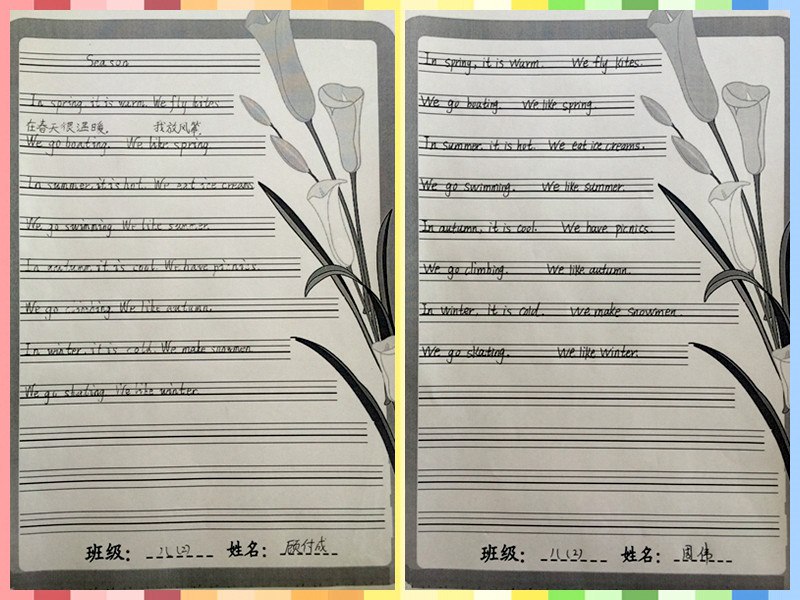 Season
In spring, it is warm. We fly kites
在春天很温暖, 我放风筝,
We go boating. We like spring
In summer, it is hot. We eat ice creams
We go swimming. We like summer.
In autumn, it is cool. We have picnics.
We go climbing. We like autumn.
In winter, it is cold. We make snowmen
We go skating. We like winter.
班级: 八(2) 姓名: 顾付成
In spring, it is warm. We fly kites.
We go boating. We like spring.
In summer, it is hot. We eat ice creams.
We go swimming. We like summer.
In autumn, it is cool. We have picnics.
We go climbing. We like autumn.
In winter, it is cold. We make snowmen
We go skating. We like winter.
班级: 八(2) 姓名: 周伟